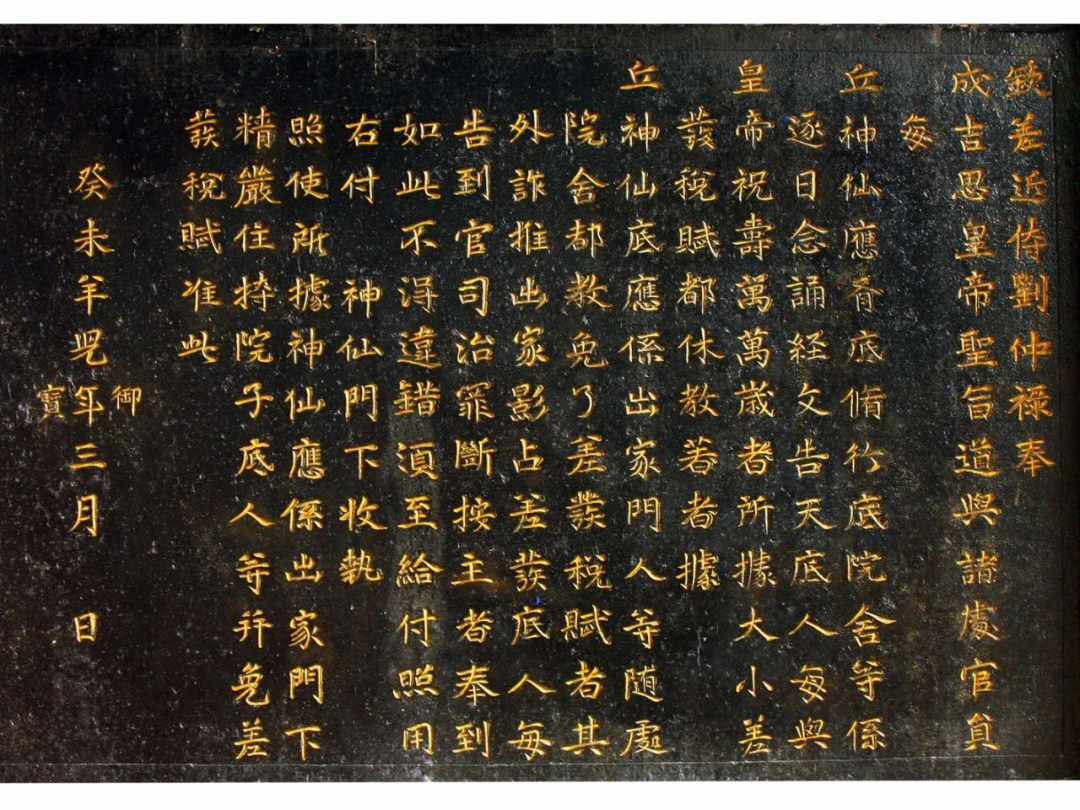 欽差近侍劉仲祿奉
成吉思皇帝聖旨道與諸處官員
每
丘神仙應有底脩行底院舍等係
逐日念誦経文告天底人每與
皇帝祝壽萬萬歲者所據大小差
發稅賦都休教著者據
丘神仙底應係出家門人等隨處
院舍都教免了差發稅賦者其
外詐推出家影占差發底人每
告到官司治罪斷按主者奉到
如此不得違錯須至給付照用
右付 神仙門下收執
照使所據神仙應係出家門下
精嚴住持院子底人等并免差
發稅賦准此
御
癸未羊兒年三月 日
寶